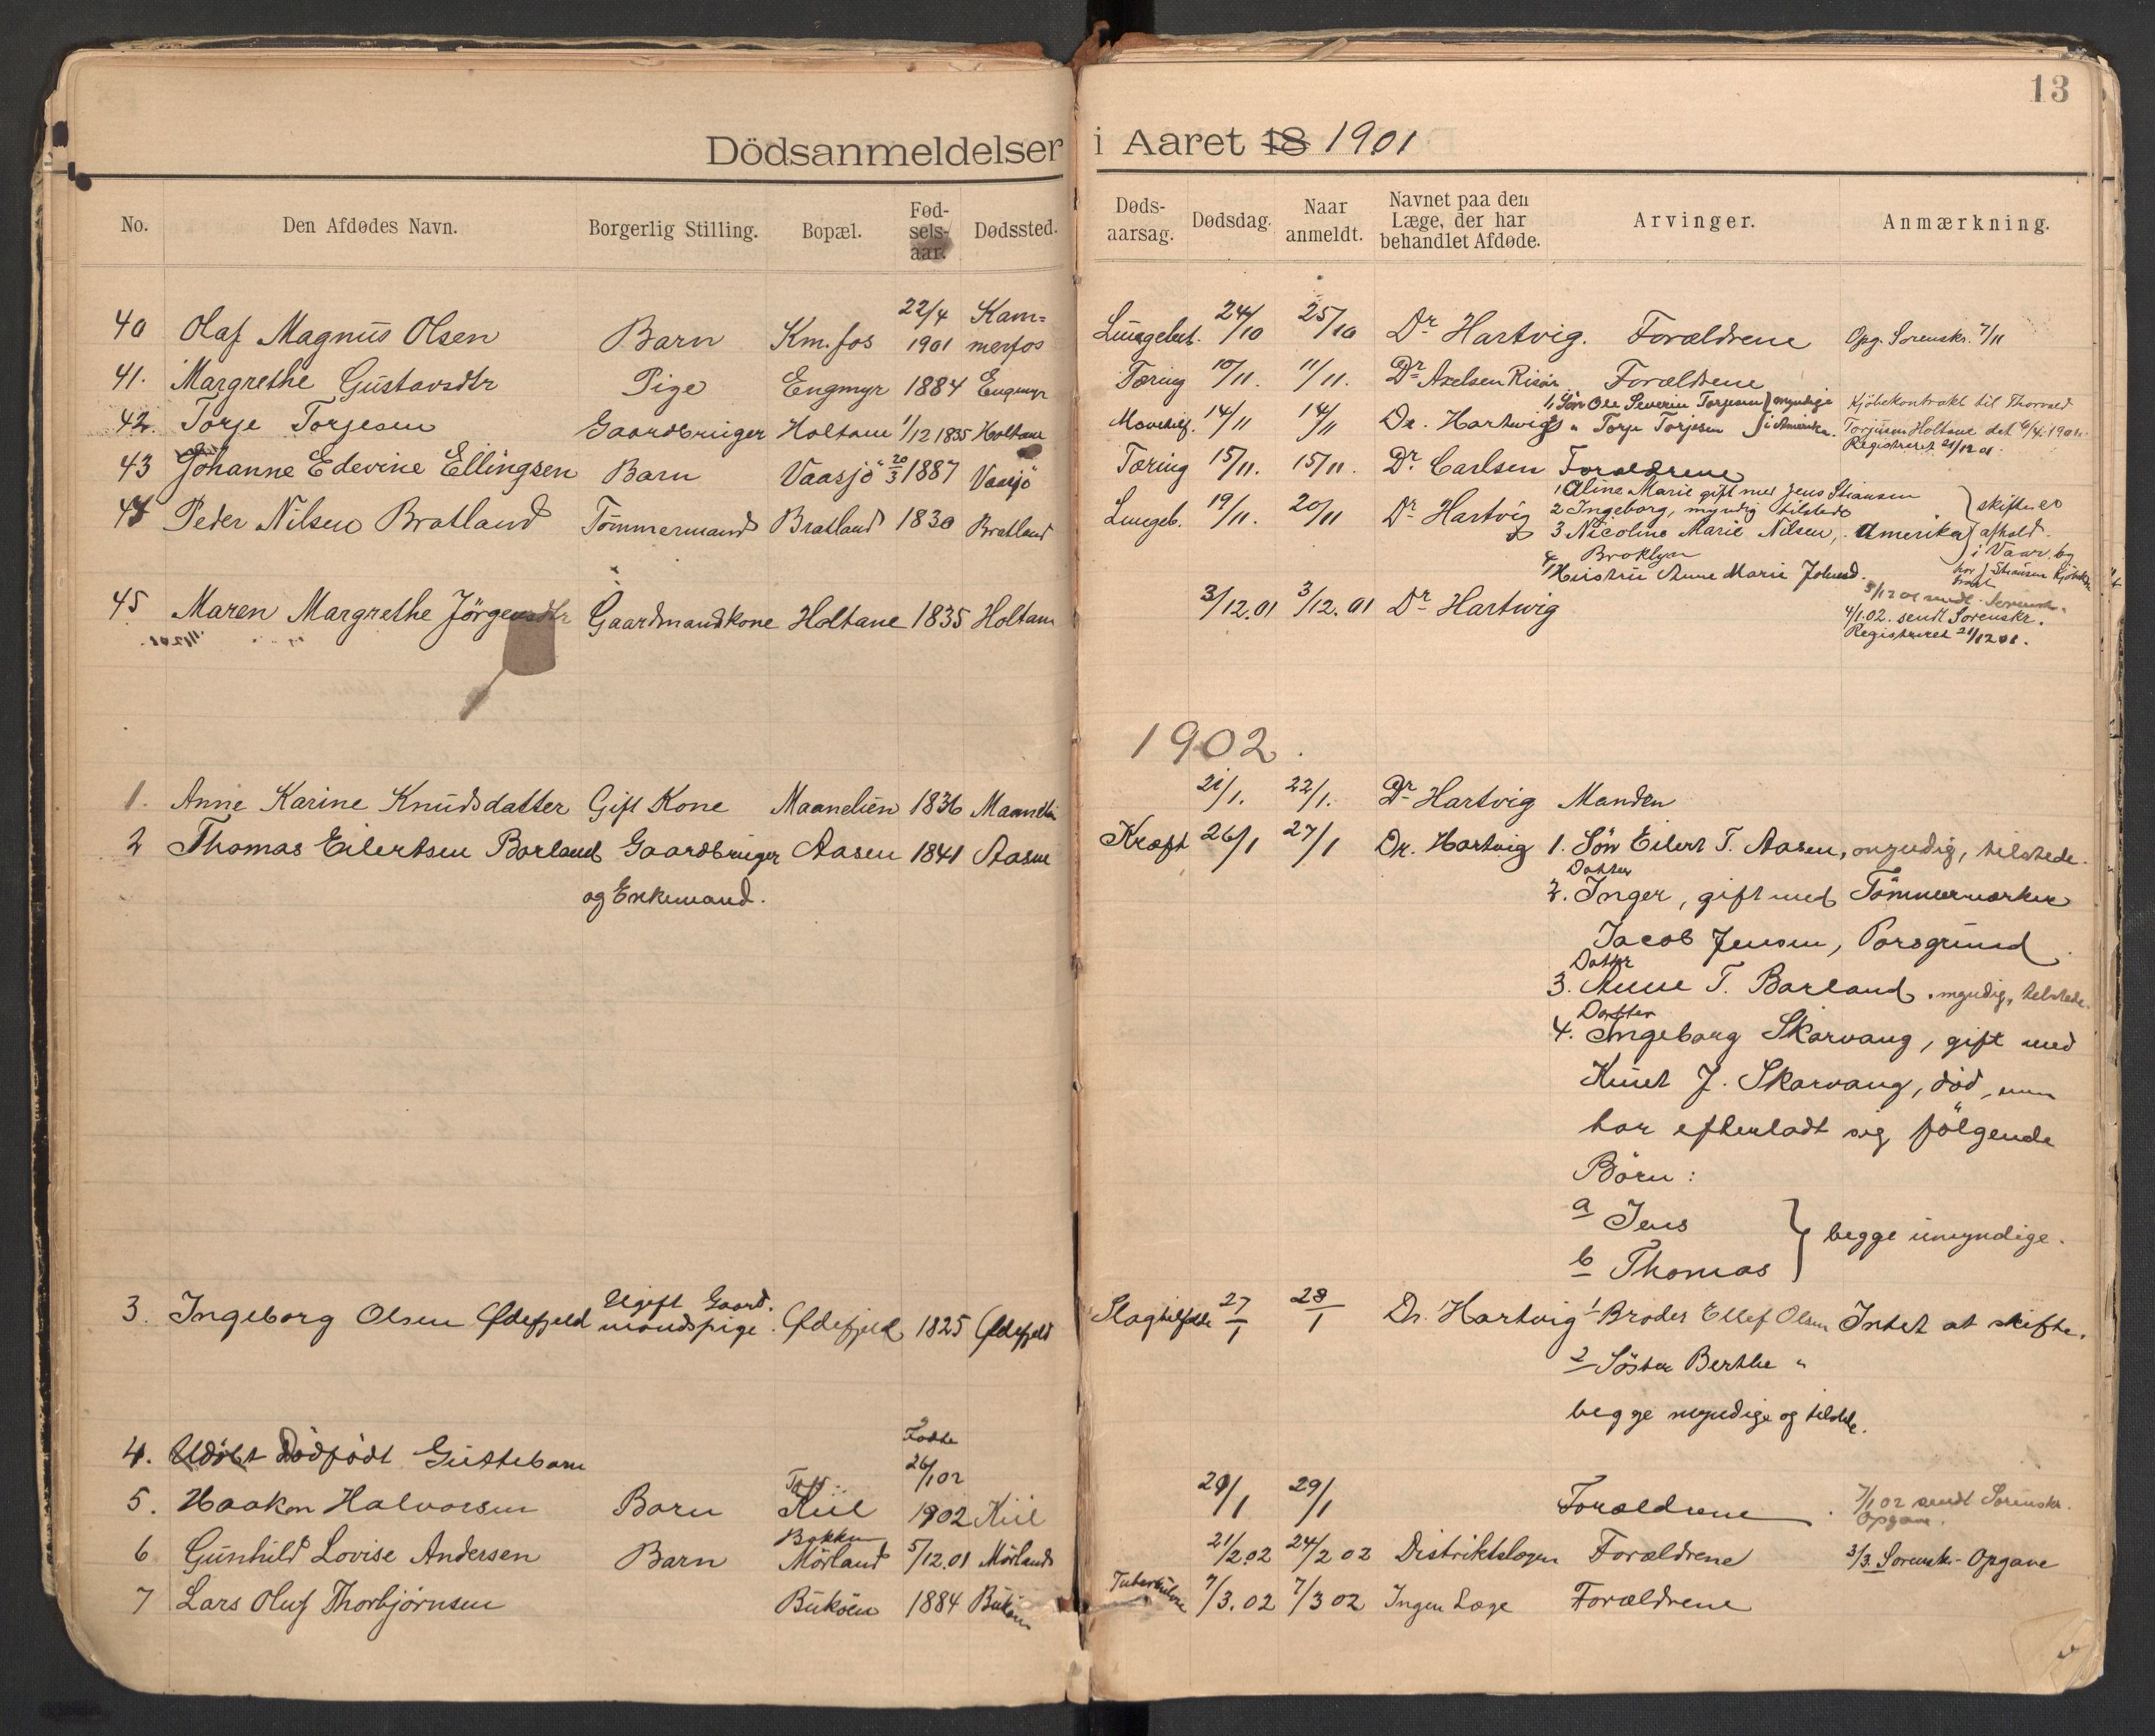 13
Dödsanmeldelser i Aaret 18 1901
No. Den Afdødes Navn. Borgerlig Stilling. Bopæl. Fødselsaar. Dødssted. Dødsaarsag. Dødsdag. Naar anmeldt. Navnet paa den Læge, der har behandlet Afdøde. Arvinger. Anmærkning.
40 Olaf Magnus Olsen Barn Km.fos 22/4 1901 Kammerfos 24/10 25/10 Dr Hartvig. Forældrene Opg. Sorenskr. 7/11
41. Margrethe Gustavsdtr Pige Engmyr 1884 Engmyr Tæring 10/11. 11/11. Dr Axelsen Risør Forældrene
42. Torje Torjesen Gaardbruger Holtane 1/12 1835 Holtane 14/11 14/11 Dr. Hartwig 1, Søn Ole Severin Torjesen 2 " Torje Torjesen } myndige i Amerika. Kjöbekontrakt til Thorvald
Holtane det 6/4. 1901.
Registreret 21/12 01.
43 Johanne Edevine Ellingsen Barn Vaasjö 20/3 1887 Vaasjö Tæring 15/11. 15/11. Dr. Carlsen Forældrene
44 Peder Nilsen Bratland Tömmermand Bratland 1830 Bratland Lungeb. 19/11. 20/11 Dr Hartvig 1 Aline Marie gift med Jens Stiansen
2 Ingeborg, myndig tilstede
3 Nicoline Marie Nilsen, Amerika
Broklyn
4 Hustru Anne Marie
} skifte er afhold. i Vaar.
45 Maren Margrethe Jörgensdtr Gaardmandkone Holtane 1835 Holtane 3/12.01 3/12.01 Dr Hartwig
4/1.02. sendt Sorenskr.
Registreret 21/12 01.
1902.
1. Anne Karine Knudsdatter Gift Kone Maanelien 1836 Maanelien 21/1. 22/1. Dr Hartvig Manden
2 Thomas Eilertsen Barland Gaardbruger Aasen 1841 Aasen Kræft 26/1 27/1 Dr. Hartvig 1. Sön Eilert T. Aasen, myndig, tilstede.
og Enkemand.
Datter
2. Inger, gift med Tömmermerker
Jacob Jensen, Porsgrund
Datter
3. Anne T. Barland, myndig, tilstede.
Datter
4. Ingeborg Skarvang, gift med
Knut J. Skarvang, död, men
har efterladt sig fölgende
Börn:
a Jens
b Thomas } begge umyndige.
3. Ingeborg Olsen Ødefjeld Ugift Gaardmandspige. Ødefjeld 1825 Ødefjeld Slagtilfælde 27/1 28/1 Dr. Hartvig 1 Broder Ellef Olsen Intet at skifte.
2 Söster Berthe "
begge myndige og tilstede.
4. Udöbt Dödfödt Guttebarn Fødte 26/1 02
5. Haakon Halvorsen Barn Kiil 1902 Kiil 29/1 Forældrene 7/1 02 sendt Sorenskr. Opgave.
6 Gunhild Lovise Andersen Barn Bakken Mörland 5/12.01 Mörland 21/2 02 24/2 02 Distriktslægen Forældrene 3/3 Sorenskr. Opgave
7 Lars Oluf Thorbjørnsen Buköen 1884 Buköen Tuberkulose 7/3.02 7/3 02 Ingen Læge Forældrene